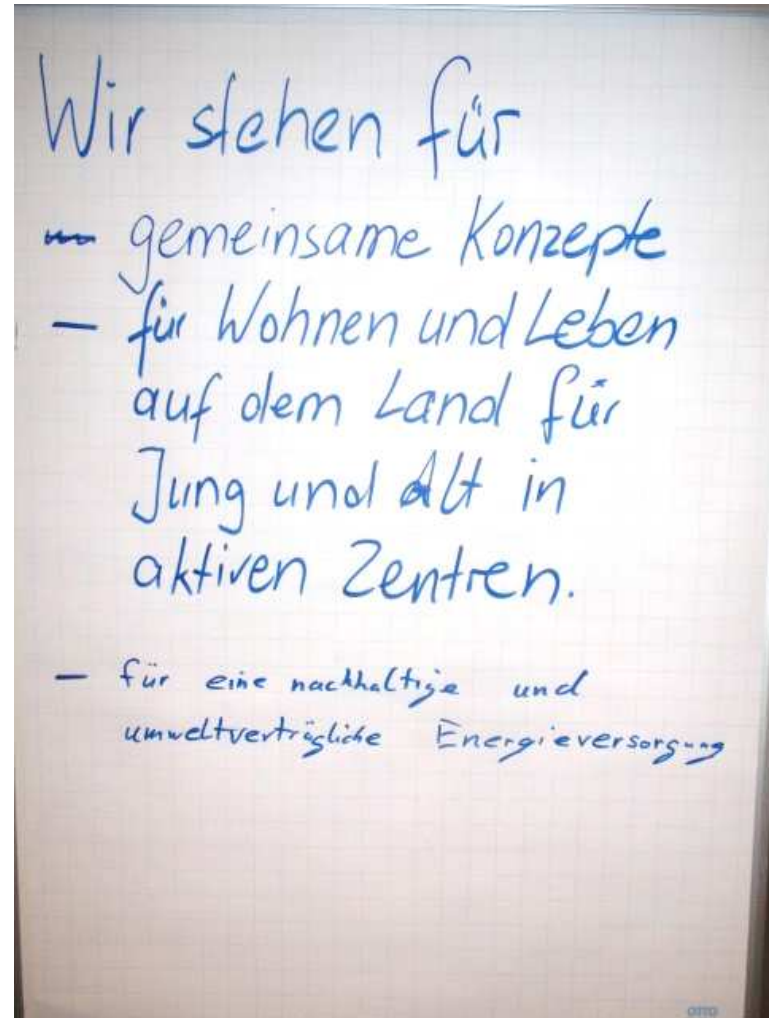 Wir stehen für
gemeinsame Konzepte
- für Wohnen und Leben
auf dem Land für
Jung und Alt in
aktiven Zentren.
- für eine nachhaltige und
umweltverträgliche Energieversorgung
OTTO